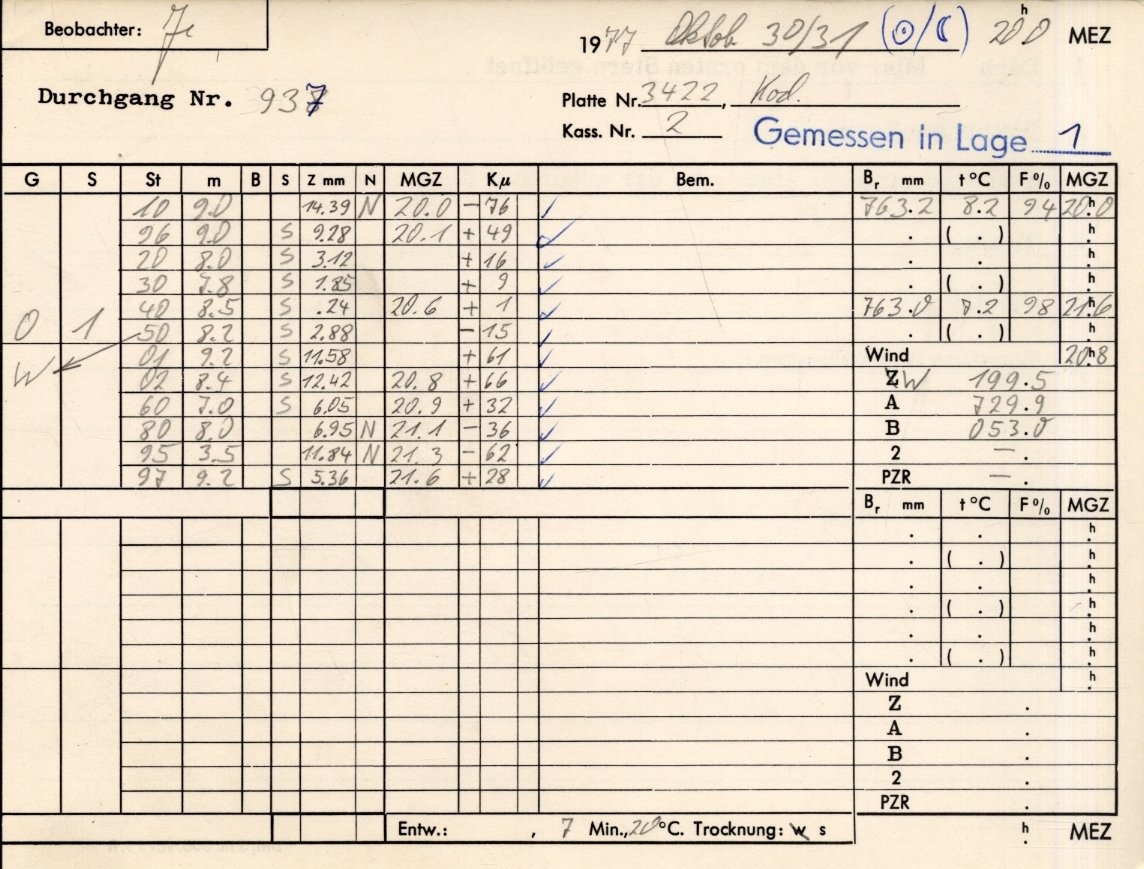 Beobachter: Je
1977 Oktob. 30/31 (☉/☾) 20.0 h MEZ
Durchgang Nr. 937
Platte Nr. 3422, Kod.
Kass. Nr. 2
Gemessen in Lage 1
G S St m B S Z mm N MGZ Kμ Bem. Br mm t °C F % MGZ
10 9.0 14.39 N 20.0 - 76 ✓ 763.2 8.2 94 20.0 h
96 9.0 S 9.28 20.1 + 49 ✓ . ( . ) h
20 8.0 S 3.12 + 16 ✓ . . h
30 7.8 S 1.85 + 9 ✓ . ( . ) h
40 8.5 S .24 20.6 + 1 ✓ 763.0 7.2 98 21.6 h
O 1 50 8.2 S 2.88 - 15 ✓ . ( . ) h
W 01 9.2 S 11.58 + 61 ✓ Wind 20.8 h
02 8.4 S 12.42 20.8 + 66 ✓ Z W 199.5
60 7.0 S 6.05 20.9 + 32 ✓ A 729.9
80 8.0 6.95 N 21.1 - 36 ✓ B 053.0
95 3.5 11.84 N 21.3 - 62 ✓ 2 — .
97 9.2 S 5.36 21.6 + 28 ✓ PZR — .
Br mm t °C F % MGZ
. . h
. ( . ) h
. . h
. ( . ) h
. . h
. ( . ) h
Wind h
Z .
A .
B .
2 .
PZR .
Entw.: , 7 Min., 20 °C. Trocknung: w s h MEZ